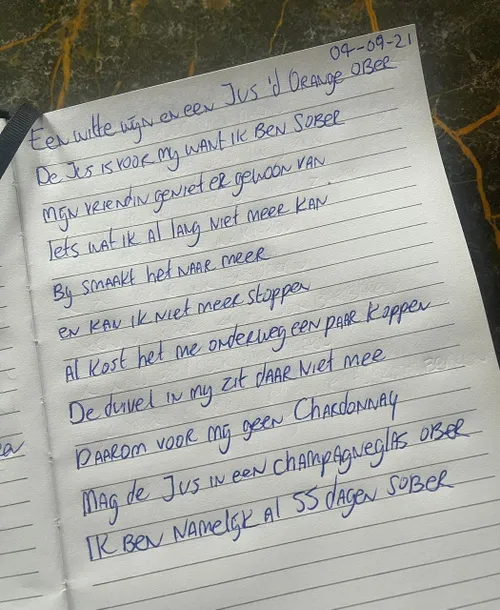 04-09-21
Een witte wijn en een Jus 'd Orange Ober
De Jus is voor mij want ik ben sober
Mijn vriendin geniet er gewoon van
Iets wat ik al lang niet meer kan
Bij smaakt het naar meer
en kan ik niet meer stoppen
Al kost het me onderweg een paar koppen
De duivel in mij zit daar niet mee
Daarom voor mij geen Chardonnay
Mag de Jus in een champagneglas ober
Ik ben namelijk al 55 dagen sober